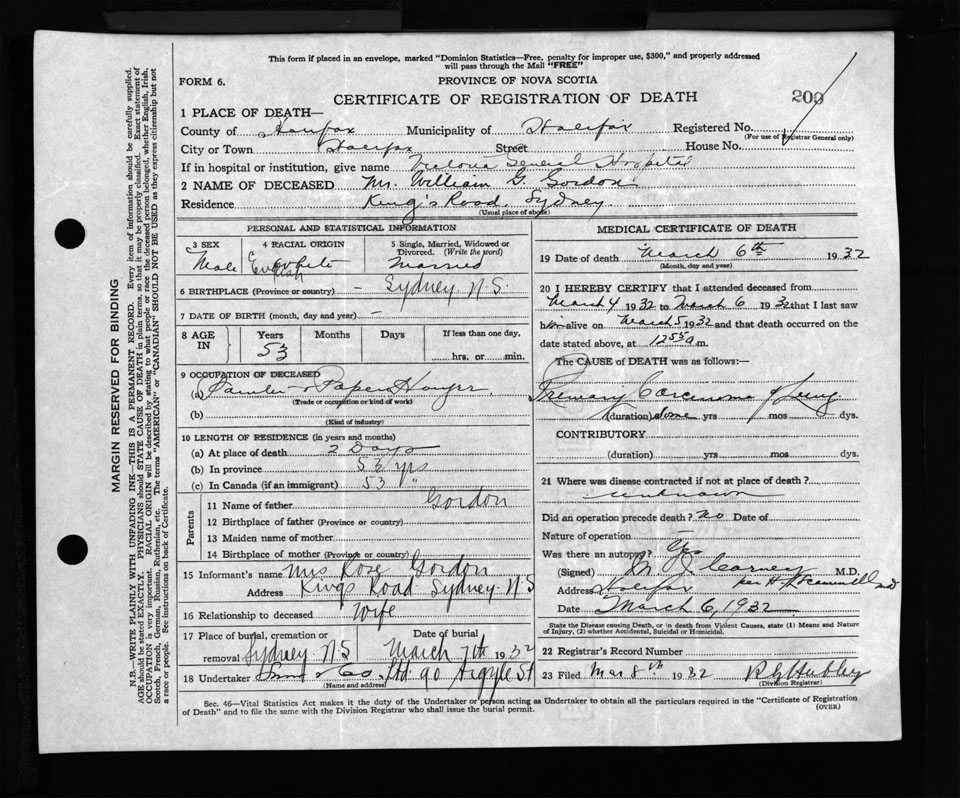 This form if placed in an envelope, marked "Dominion Statistics—Free, penalty for improper use, $300," and properly addressed
will pass through the Mail "FREE"
FORM 6.
PROVINCE OF NOVA SCOTIA
CERTIFICATE OF REGISTRATION OF DEATH
200
1 PLACE OF DEATH—
County of Halifax Municipality of Halifax Registered No.
(For use of Registrar General only)
City or Town Halifax Street House No.
If in hospital or institution, give name Victoria General Hospital
2 NAME OF DECEASED Mr. William G. Gordon
Residence King's Road, Sydney
(Usual place of abode)
PERSONAL AND STATISTICAL INFORMATION
3 SEX 4 RACIAL ORIGIN 5 Single, Married, Widowed or
Divorced. (Write the word)
Male White English Married
6 BIRTHPLACE (Province or country) — Sydney N.S.
7 DATE OF BIRTH (month, day and year) —
8 AGE IN Years Months Days If less than one day,
53 hrs. or min.
9 OCCUPATION OF DECEASED
(a) Painter & Paper Hanger
(Trade or occupation or kind of work)
(b)
(Kind of industry)
10 LENGTH OF RESIDENCE (in years and months)
(a) At place of death 2 Days
(b) In province 53 yrs
(c) In Canada (if an immigrant) 53 "
Parents
11 Name of father Gordon
12 Birthplace of father (Province or country)
13 Maiden name of mother
14 Birthplace of mother (Province or country)
15 Informant's name Mrs Rose Gordon
Address Kings Road Sydney N S
16 Relationship to deceased Wife
17 Place of burial, cremation or Date of burial
removal Sydney N S March 7th 1932
18 Undertaker Snow & Co. Ltd 90 Argyle St
(Name and address)
MEDICAL CERTIFICATE OF DEATH
19 Date of death March 6th 1932
(Month, day and year)
20 I HEREBY CERTIFY that I attended deceased from
March 4 1932 to March 6 1932 that I last saw
him alive on March 5 1932 and that death occurred on the
date stated above, at 12 55 a m.
The CAUSE OF DEATH was as follows:—
Primary Carcinoma of Lung
(duration) Some yrs mos dys.
CONTRIBUTORY
(duration) yrs mos dys.
21 Where was disease contracted if not at place of death?
unknown
Did an operation precede death? No Date of
Nature of operation
Was there an autopsy? Yes
(Signed) M J Carney M.D.
per H
Address Halifax
Date March 6, 1932
State the Disease causing Death, or in death from Violent Causes, state (1) Means and Nature
of Injury, (2) whether Accidental, Suicidal or Homicidal.
22 Registrar's Record Number
23 Filed Mar 8th 1932
(Division Registrar)
Sec. 46—Vital Statistics Act makes it the duty of the Undertaker or person acting as Undertaker to obtain all the particulars required in the "Certificate of Registration
of Death" and to file the same with the Division Registrar who shall issue the burial permit.
(OVER)
MARGIN RESERVED FOR BINDING
N.B.—WRITE PLAINLY WITH UNFADING INK—THIS IS A PERMANENT RECORD. Every item of information should be carefully supplied.
AGE should be stated EXACTLY. PHYSICIANS should STATE CAUSE OF DEATH in plain terms, so that it may be properly classified. Exact statement of
OCCUPATION is very important. RACIAL ORIGIN will be described by stating to what people or race the deceased person belonged, whether English, Irish,
Scotch, French, German, Russian, Ruthenian, etc. The terms "AMERICAN" or "CANADIAN" SHOULD NOT BE USED as they express citizenship but not
a race or people. See instructions on back of Certificate.